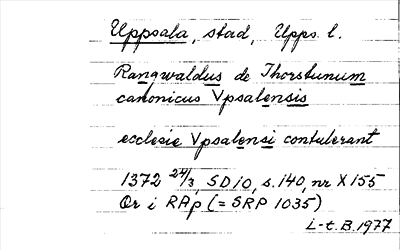 Uppsala, stad, Upps. l.
Rangwaldus de Thorstunum
canonicus Vpsalensis
ecclesie Vpsalensi contulerant
1372 24/3, SD 10, s. 140, nr X 155
Or i RAp (= SRP 1035)
L-t. B. 1977